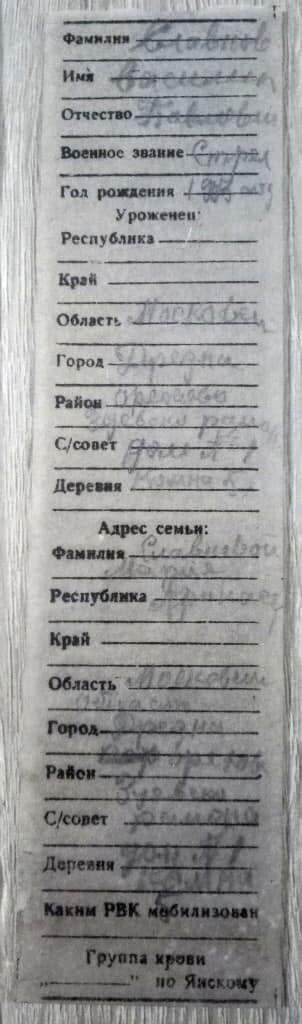 Фамилия Славнов
Имя Василий
Отчество Павлович
Военное звание Стрел
Год рождения
Уроженец:
Республика
Край
Область Московск
Город Дрезна
Район Орехово
Зуевски район
С/совет дом № 1
Деревня Комна
Адрес семьи:
Фамилия Славновой
Мария
Республика
Край
Область Московск
Город Дрезна
Район
Зуевски
С/совет района
Деревня дом № 1
комна
Каким РВК мобилизован
Группа крови
„ “ по Янскому